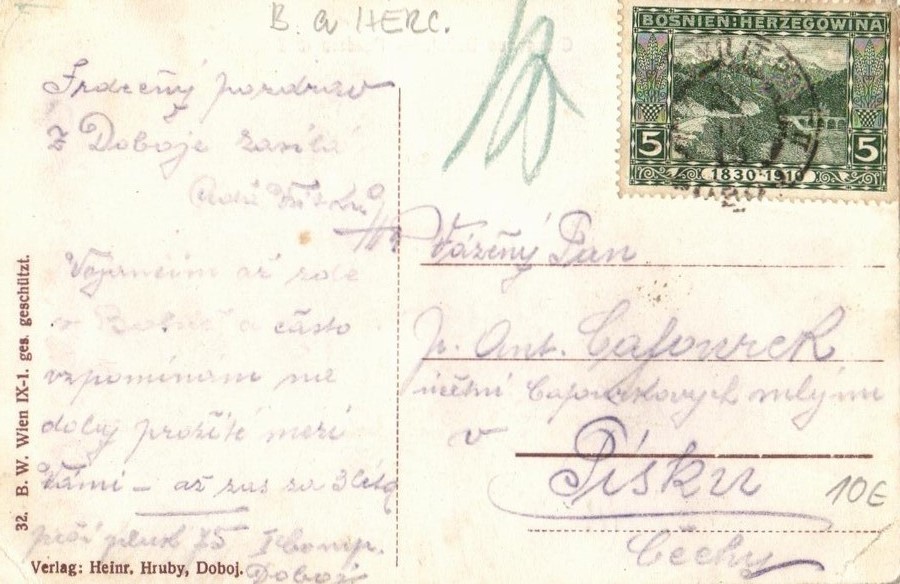 B. a HERC.
BOSNIEN-HERZEGOWINA
5 5
1830-1910
Srdečný pozdrav
z Doboje zasílá
Vojančím až zde
v Bosně a často
vzpomínám na
doby prožité mezi
Vámi – až zas za 3 léta
pěší pluk 75 1komp.
Doboj
Vážený Pan
Ant.
účetní mlýnu
v Písku
Čechy
10€
32. B. W. Wien IX-1. ges. geschützt.
Verlag: Heinr. Hruby, Doboj.